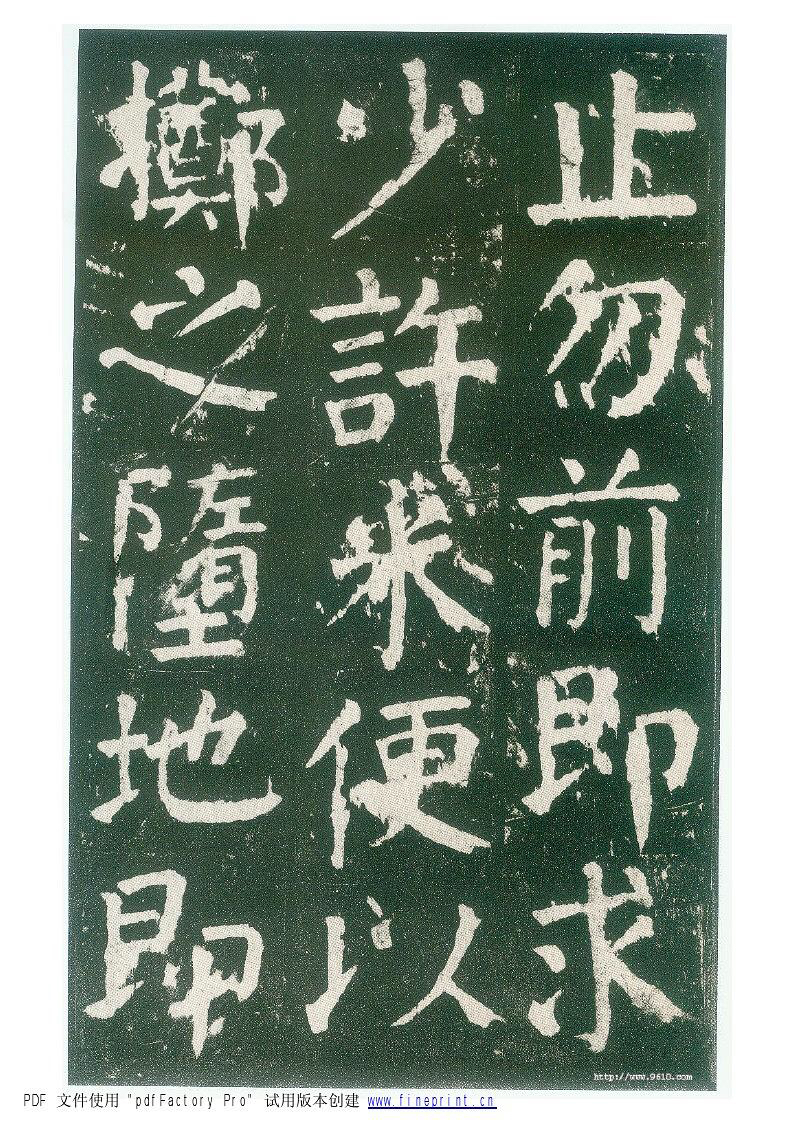 止勿前即求
少許米便以
擲之墮地即
http://www.9610.com
PDF 文件使用 "pdfFactory Pro" 试用版本创建 www.fineprint.cn